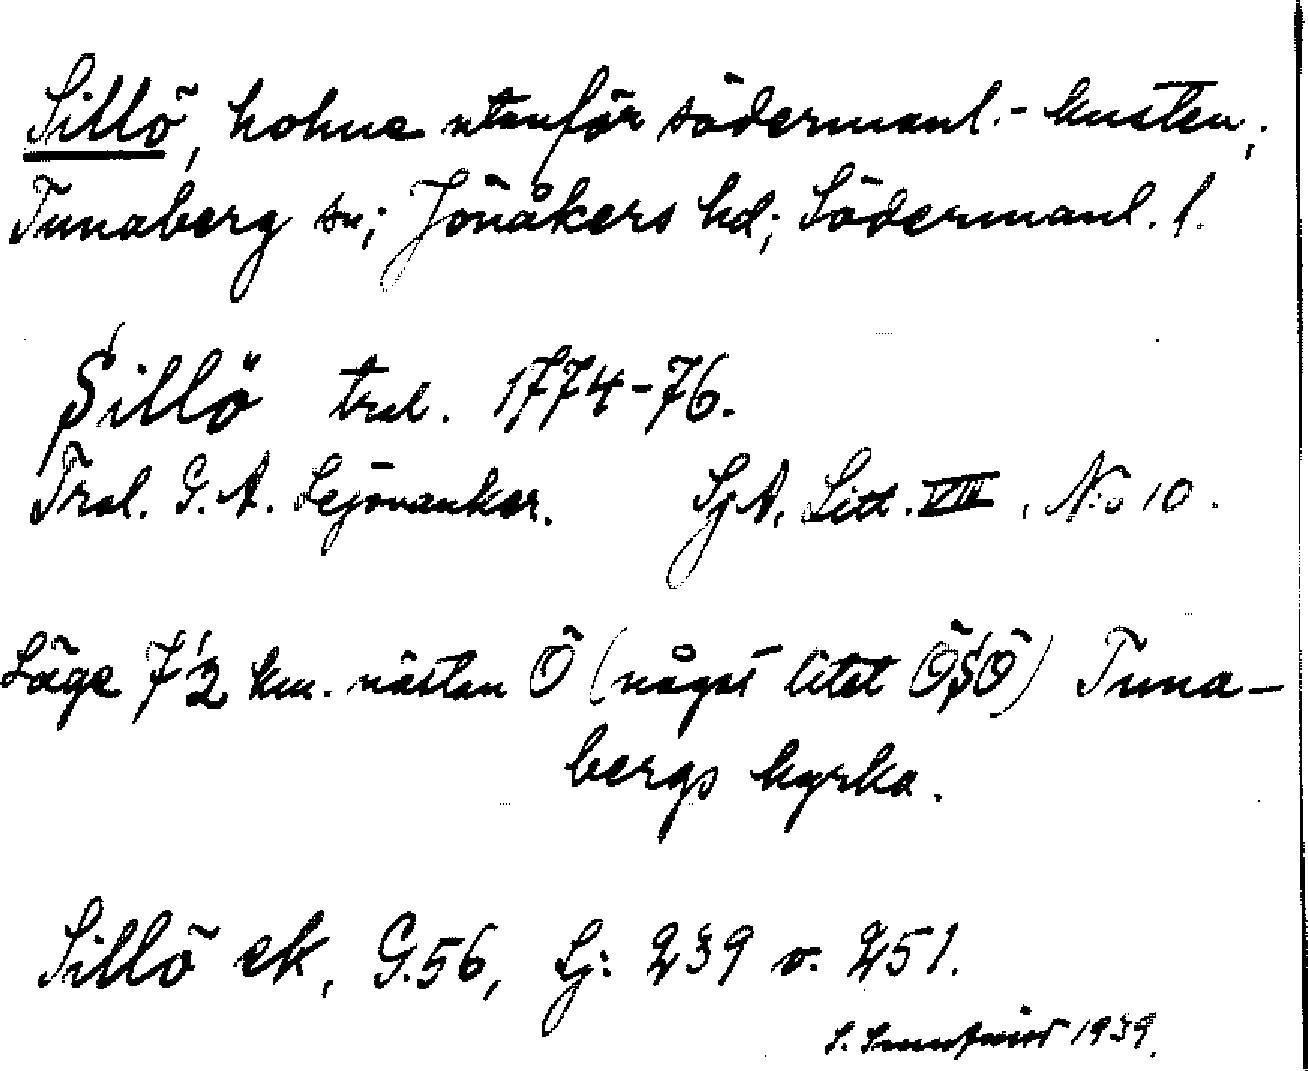 Sillö, holme utanför södermanl.-kusten,
Tunaberg sn; Jönåkers hd; Södermanl. l.
Sillö tral. 1774-76.
Tral. G. A. Lejonankar. SjA. Litt. VIII, No 10.
Läge 7½ km. nästan Ö (något litet ÖSÖ) Tuna-
bergs kyrka.
Sillö ek, G.56, Sj: 239 o. 251.
S. 1939.